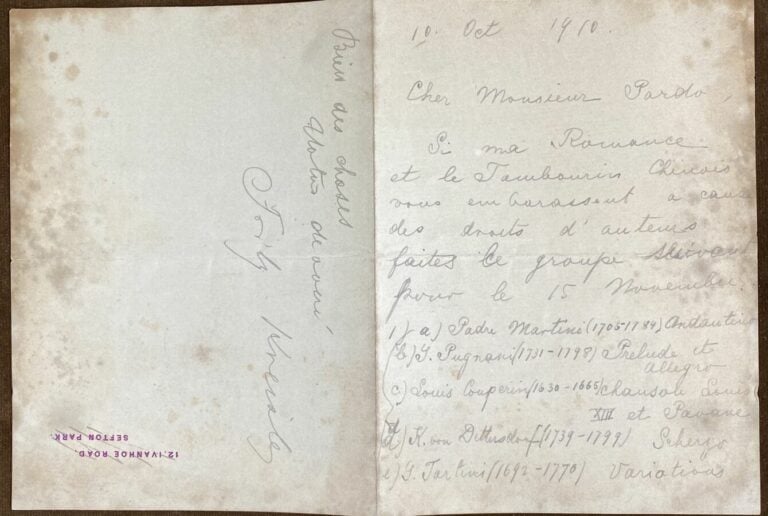 10. Oct 1910.
Cher Monsieur Pardo,
Si ma Romance
et le Tambourin Chinois
vous embarassent a cause
des droits d'auteurs
faites le groupe suivant
pour le 15 November.
1) a) Padre Martini (1705-1784) Andantino
b) G. Pugnani (1731-1798) Prelude et
Allegro
c) Louis Couperin (1630-1665) chanson Louis
XIII et Pavane
d) K. von Dittersdorf (1739-1799) Scherzo
e) G. Tartini (1692-1770) Variations
Bien des choses
Votre devoué
Fritz Kreisler
12, IVANHOE ROAD,
SEFTON PARK.